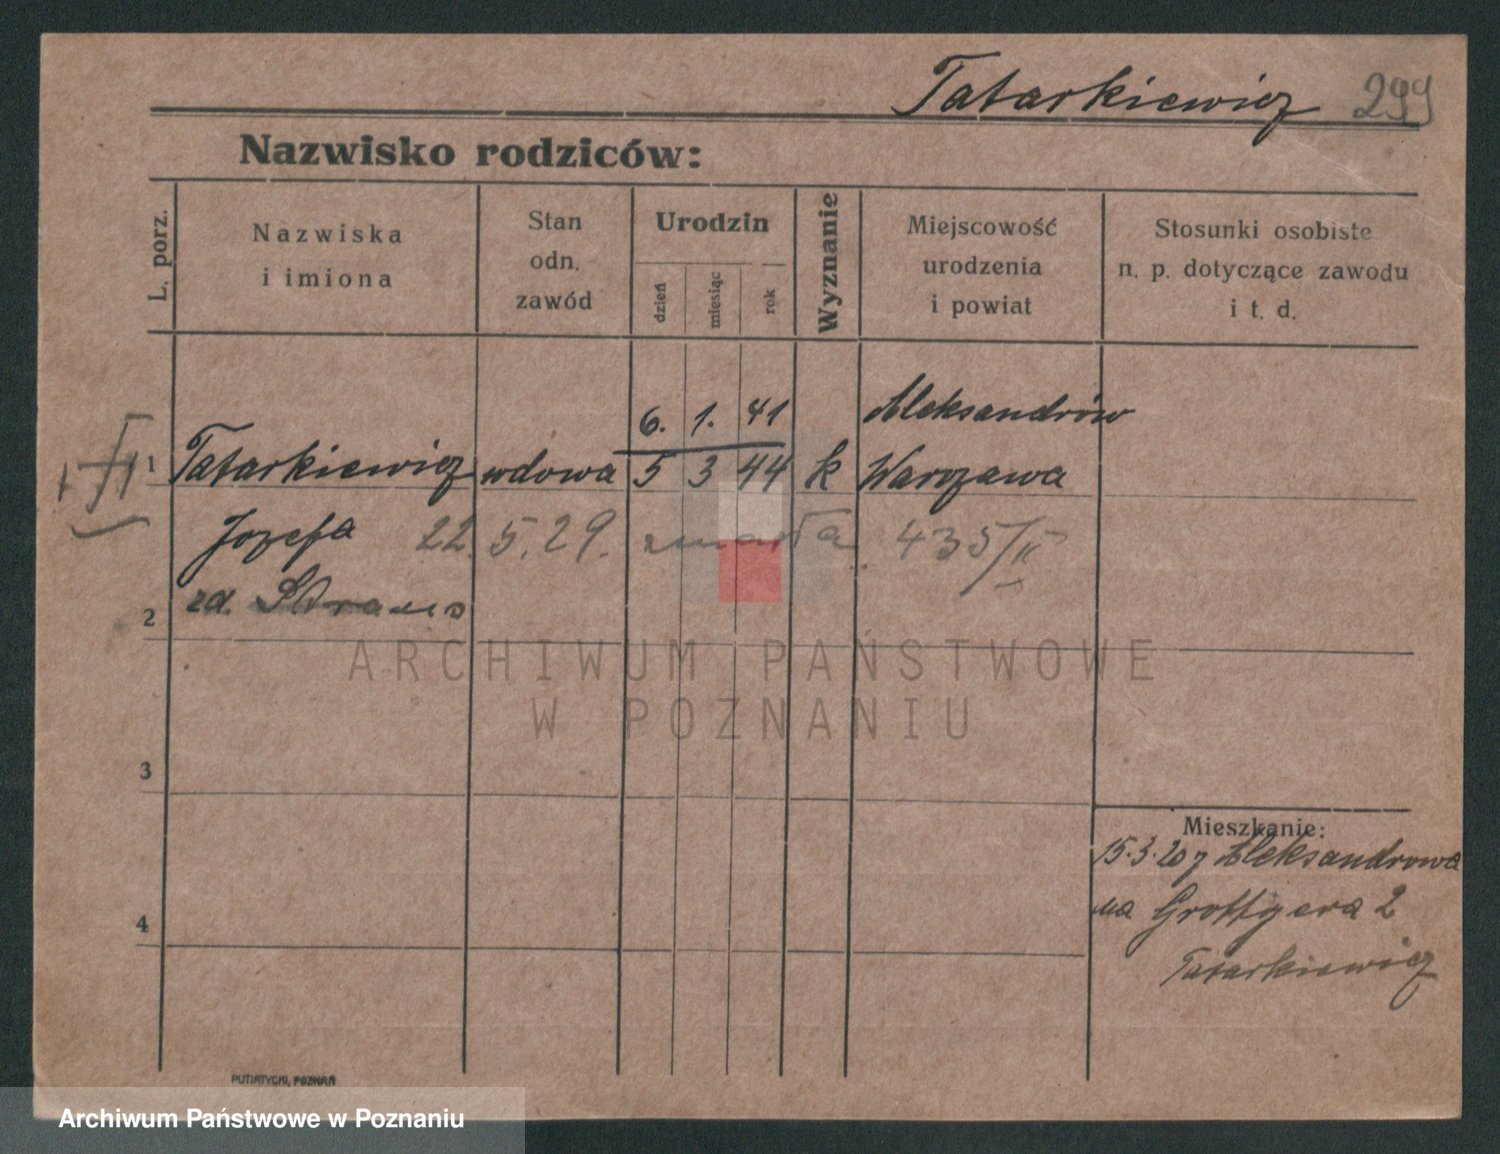 Tatarkiewicz 299
Nazwisko rodziców:
L. porz.
Nazwiska
i imiona
Stan
odn.
zawód
Urodzin
dzień
miesiąc
rok
Wyznanie
Miejscowość
urodzenia
i powiat
Stosunki osobiste
n. p. dotyczące zawodu
i t. d.
6. 1. 41 Aleksandrów
1 Tatarkiewicz wdowa 5 3 44 k Warszawa
Józefa 22. 5. 29. zmarła. 435/II
2 zd.
3
4
Mieszkanie:
15.3.20 z Aleksandrowa
na Grottgera 2
Tatarkiewicz
PUTIATYCKI, POZNAŃ
ARCHIWUM PAŃSTWOWE
W POZNANIU
Archiwum Państwowe w Poznaniu